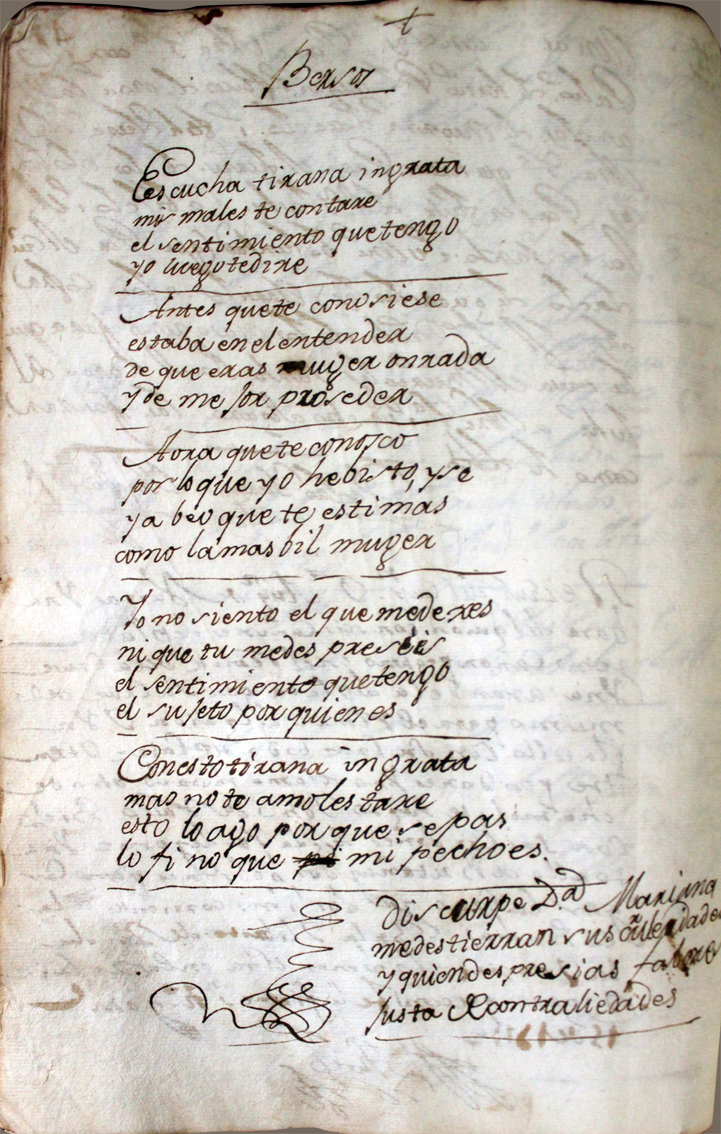 +
Bersos
Escucha tirana ingrata
mis males te contare
el sentimiento que tengo
yo luego te dire
Antes que te conosiese
estaba en el entender
de que eras muger onrada
y de mejor proseder
Aora que te conosco
por lo que yo he bisto, y se
ya beo que te estimas
como la mas bil muger
Yo no siento el que me dexes
ni que tu me despresies
el sentimiento que tengo
el sujeto por quien es
Con esto tirana ingrata
mas no te amolestare
esto lo ago por que sepas
lo fino que mi pecho es.
Disculpe Dad Mariana
me destierran sus crueldades
y quien despresias
justa contraliedades